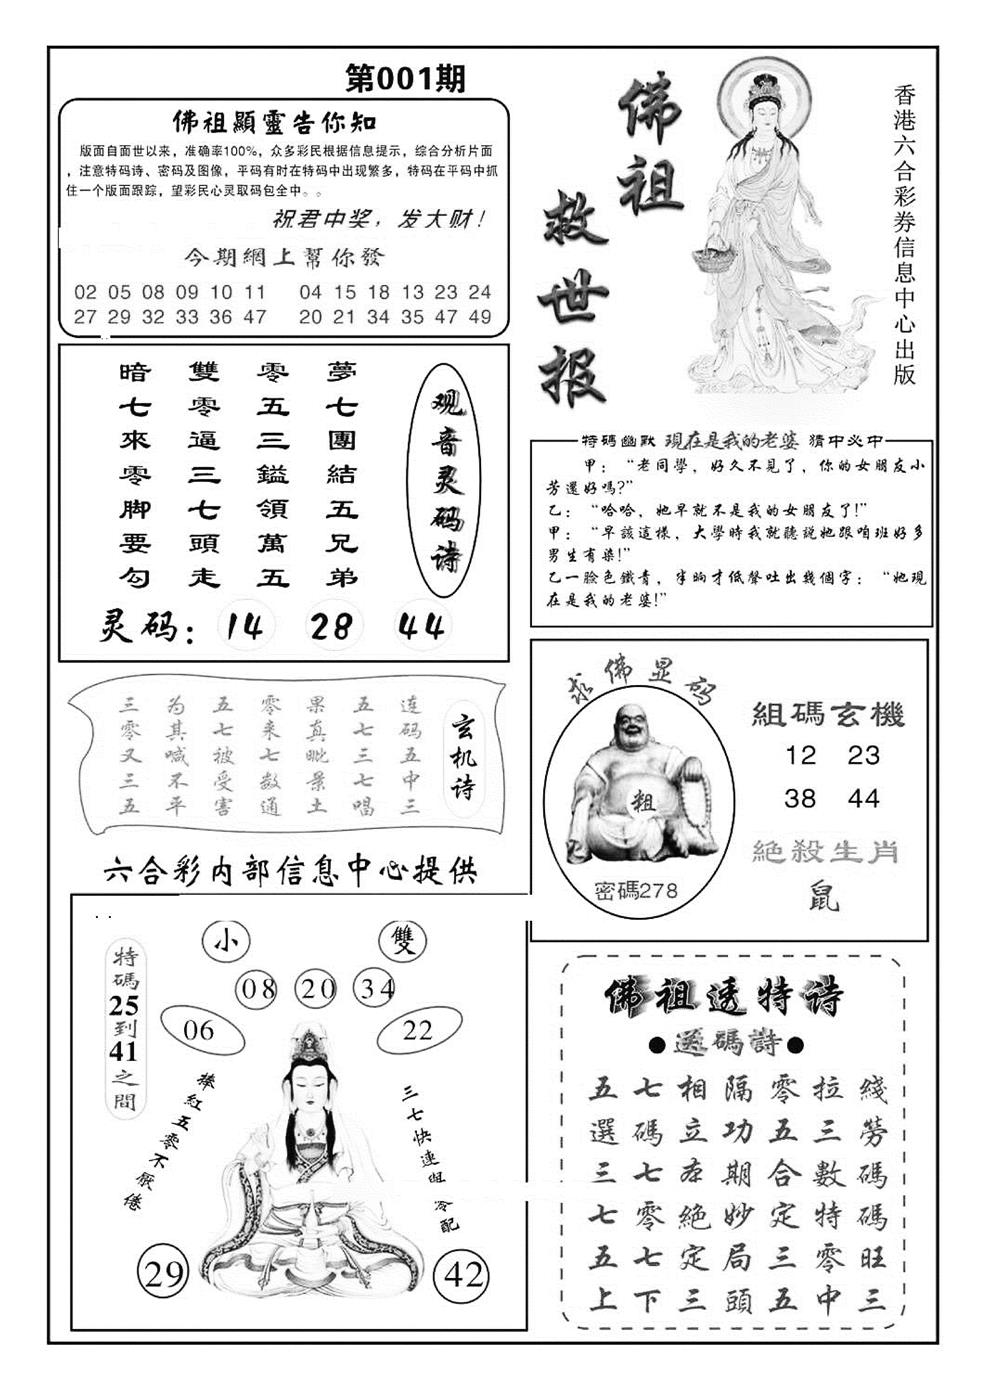 第001期
佛祖顯靈告你知
版面自面世以来，准确率100%，众多彩民根据信息提示，综合分析片面
，注意特码诗、密码及图像，平码有时在特码中出现繁多，特码在平码中抓
住一个版面跟踪，望彩民心灵取码包全中。。
祝君中奖，发大财！
今期網上幫你發
02 05 08 09 10 11 04 15 18 13 23 24
27 29 32 33 36 47 20 21 34 35 47 49
佛祖
救世报
香港六合彩券信息中心出版
观音灵码诗
夢七團結五兄弟
零五三鎰領萬五
雙零逼三七頭走
暗七來零脚要勾
灵码：14 28 44
特碼幽默 現在是我的老婆 猜中必中
甲：“老同學，好久不見了，你的女朋友小
芳還好嗎?”
乙：“哈哈，她早就不是我的女朋友了!”
甲：“早該這樣，大學時我就聽説她跟咱班好多
男生有染!”
乙一脸色鐵青，半晌才低聲吐出幾個字：“她現
在是我的老婆!”
玄机诗
连码五中三
五七三七唱
果真毗景土
零来七数通
五七被受害
为其喊不平
三零又三五
六合彩内部信息中心提供
求佛显码
粗
密碼278
組碼玄機
12 23
38 44
絕殺生肖
鼠
特碼25到41之間
小 雙
08 20 34
06 22
捧紅五零不厭倦
三七快連與零配
29 42
佛祖透特诗
●透碼詩●
五七相隔零拉綫
選碼立功五三勞
三七本期合數碼
七零絕妙定特碼
五七定局三零旺
上下三頭五中三